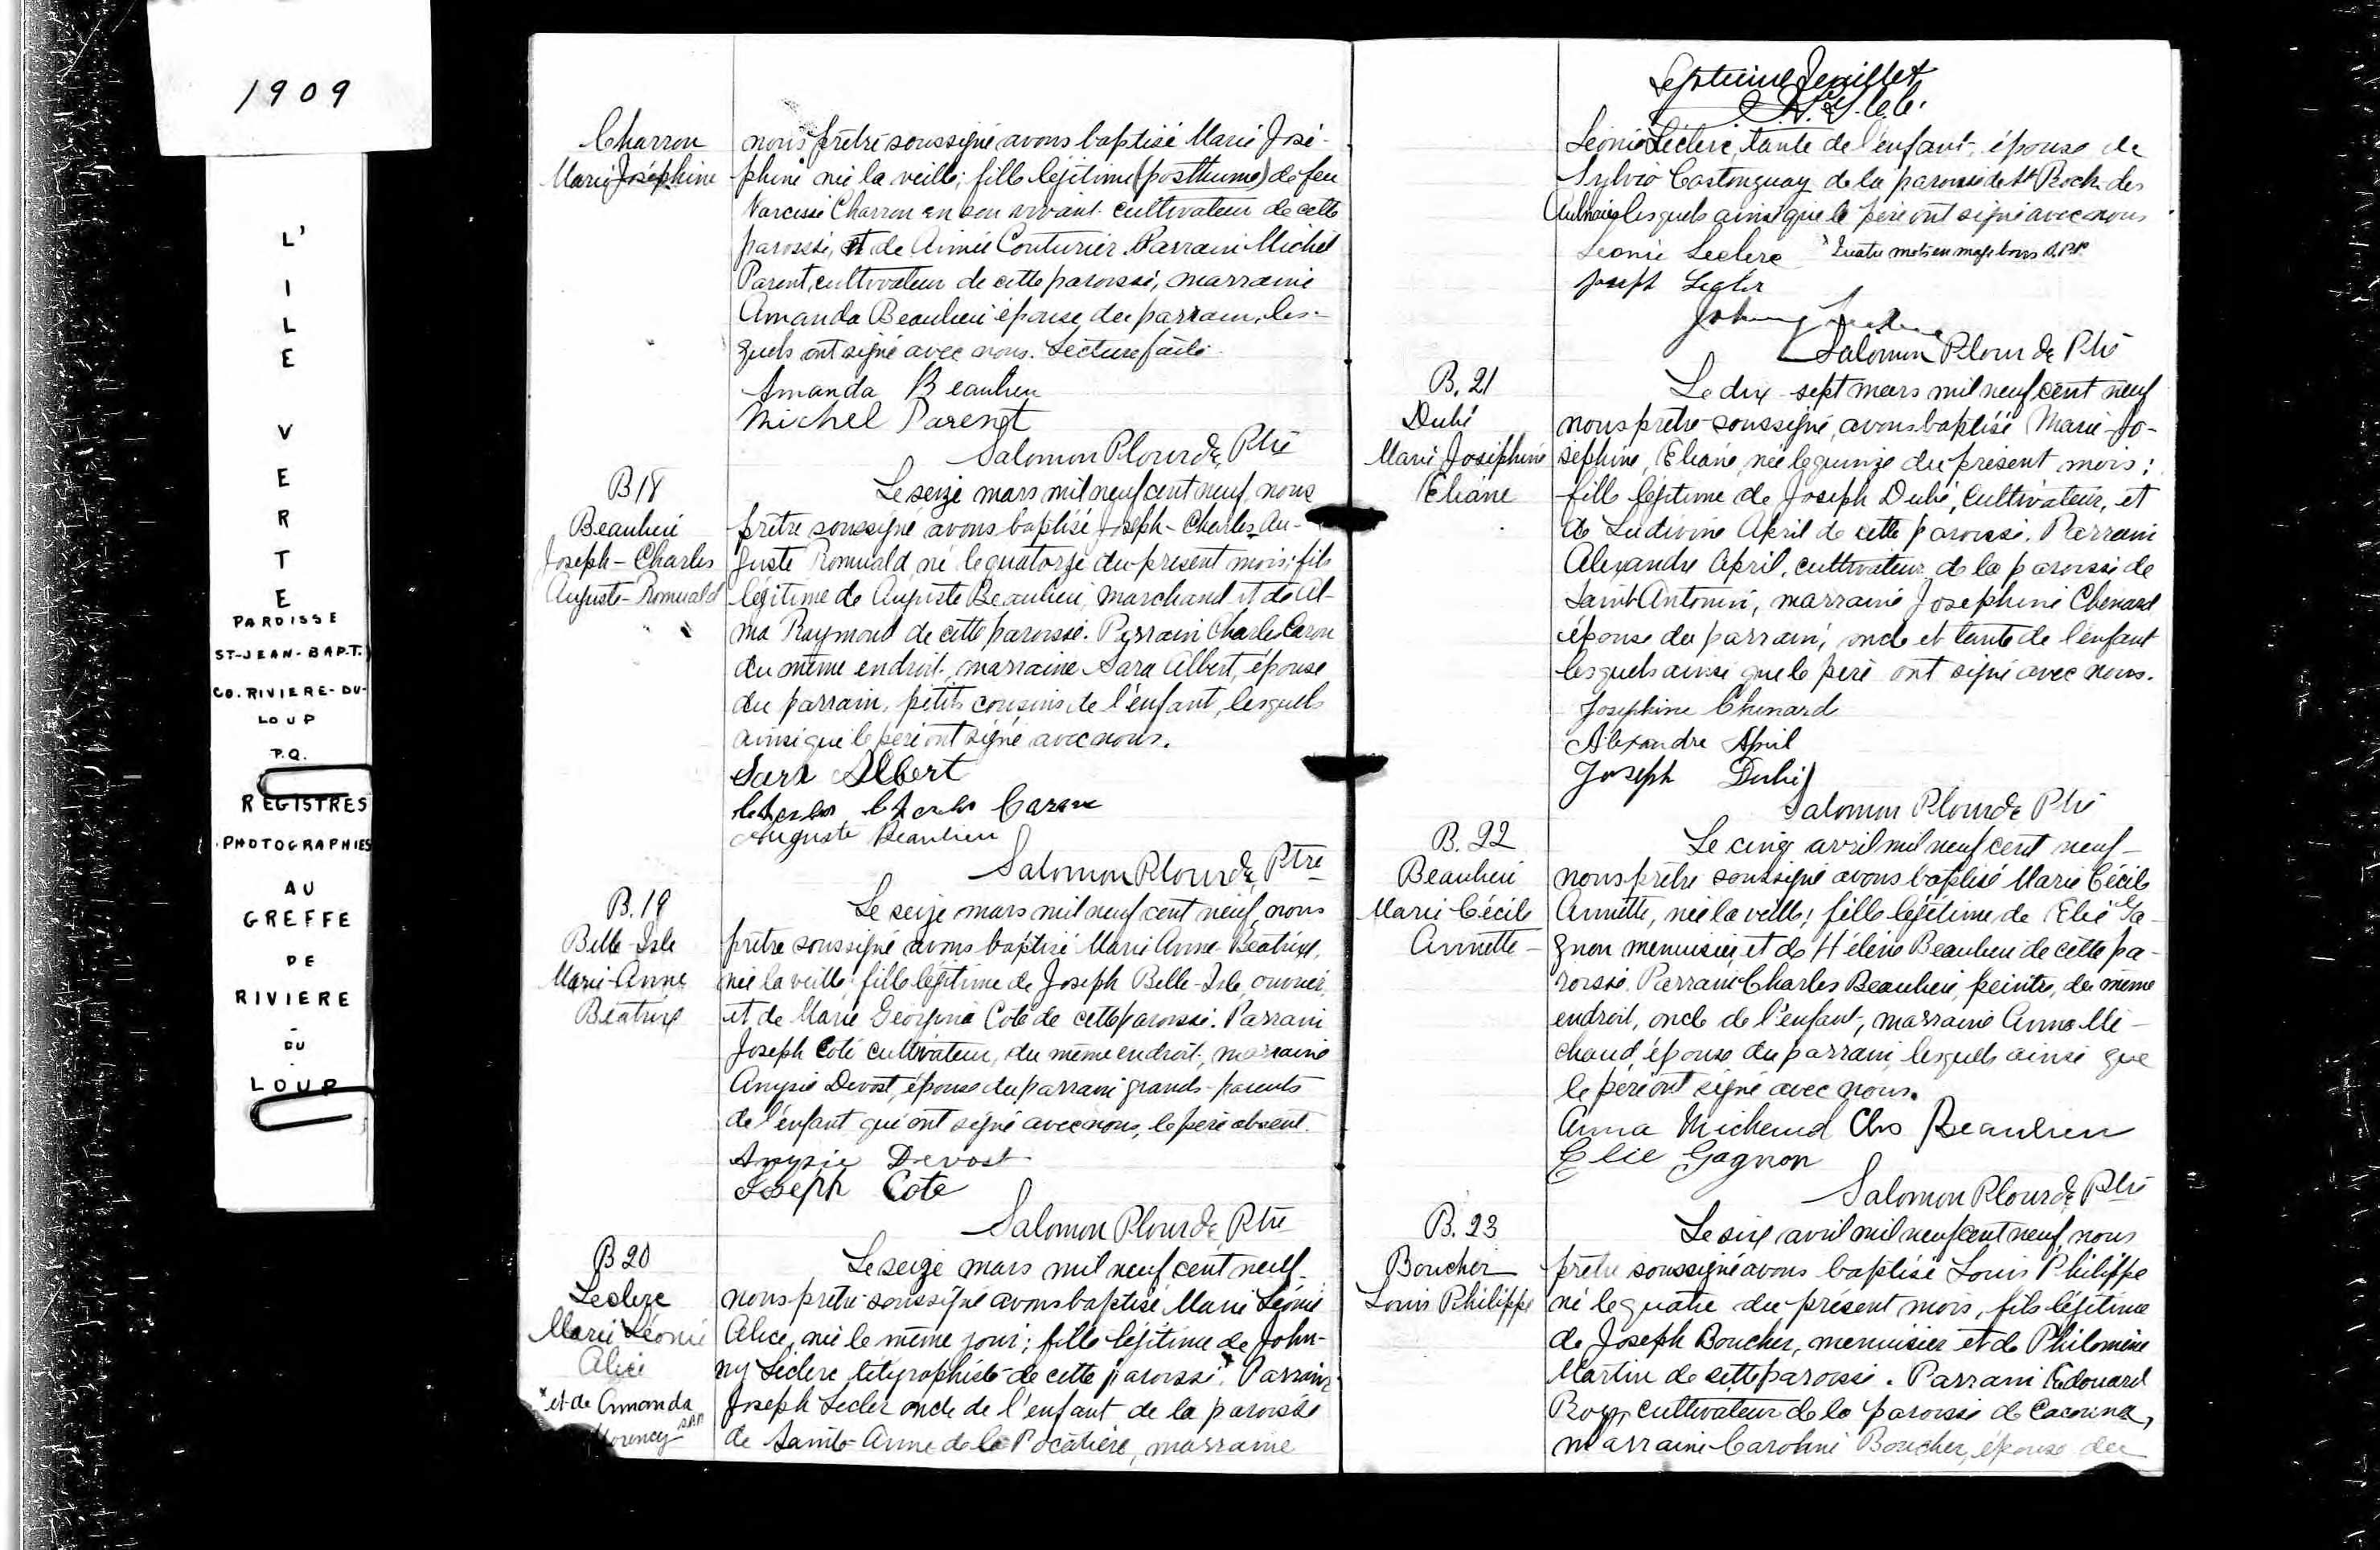 1909
L'
I
L
E
V
E
R
T
E
PAROISSE
ST-JEAN-BAPT.
CO. RIVIERE-DU-
LOUP
P.Q.
REGISTRES
PHOTOGRAPHIES
AU
GREFFE
DE
RIVIERE
-
DU
-
LOUP
Charron
Marie Joséphine
nous prêtre soussigné avons baptisé Marie José-
phine née la veille; fille légitime (posthume) de feu
Narcisse Charron en son vivant cultivateur de cette
paroisse, et de Aimée Couturier. Parrain Michel
Parent, cultivateur de cette paroisse, marraine
Amanda Beaulieu épouse du parrain, les-
quels ont signé avec nous. Lecture faite.
Amanda Beaulieu
Michel Parent
Salomon Plourde, Ptre
B 18
Beaulieu
Joseph-Charles
Auguste-Romuald
Le seize mars mil neuf cent neuf, nous
prêtre soussigné avons baptisé Joseph-Charles-Au-
guste Romuald, né le quatorze du présent mois; fils
légitime de Auguste Beaulieu, marchand et de Al-
ma Raymond de cette paroisse. Parrain Charles Caron
du même endroit, marraine Sara Albert, épouse
du parrain, petits cousins de l'enfant, lesquels
ainsi que le père ont signé avec nous.
Sara Albert
Charles Caron
Auguste Beaulieu
Salomon Plourde, Ptre
B. 19
Belle-Isle
Marie-Anne
Béatrix
Le seize mars mil neuf cent neuf, nous
prêtre soussigné avons baptisé Marie Anne Béatrix,
née la veille; fille légitime de Joseph Belle-Isle, ouvrier,
et de Marie Géorgina Coté de cette paroisse. Parrain
Joseph Coté cultivateur, du même endroit, marraine
Anysie Devost, épouse du parrain grands-parents
de l'enfant qui ont signé avec nous, le père absent.
Anysie Devost
Joseph Cote
Salomon Plourde, Ptre
B 20
Leclerc
Marie Léonie
Alice
x et de Amanda
Morency S.P.P.
Le seize mars mil neuf cent neuf
nous prêtre soussigné avons baptisé Marie Léonie
Alice, née le même jour; fille légitime de John-
ny Leclerc télégraphiste de cette paroisse x. Parrain
Joseph Lecler oncle de l'enfant de la paroisse
de Sainte-Anne de la Pocatière, marraine
Septième feuillet
Léonie Leclerc, tante de l'enfant, épouse de
Sylvio Castonguay de la paroisse de St Roch des
Aulnaies lesquels ainsi que le père ont signé avec nous
Leonie Leclerc x Quatre mots en marge bons S.P.P.
Joseph Lecler
Johnny Leclerc
Salomon Plourde Ptre
B. 21
Dubé
Marie Joséphine
Eliane
Le dix-sept mars mil neuf cent neuf
nous prêtre soussigné, avons baptisé Marie-Jo-
séphine, Eliane, née le quinze du présent mois;
fille légitime de Joseph Dubé, cultivateur, et
de Ludivine April de cette paroisse. Parrain
Alexandre April, cultivateur de la paroisse de
Saint-Antonin, marraine Josephine Chenard
épouse du parrain, oncle et tante de l'enfant
lesquels ainsi que le père ont signé avec nous.
Josephine Chenard
Alexandre April
Joseph Dubé
Salomon Plourde Ptre
B. 22
Beaulieu
Marie Cécile
Annette
Le cinq avril mil neuf cent neuf
nous prêtre soussigné avons baptisé Marie Cécile
Annette, née la veille; fille légitime de Elie Ga-
gnon menuisier, et de Hélène Beaulieu de cette pa-
roisse. Parrain Charles Beaulieu, peintre, du même
endroit, oncle de l'enfant, marraine Anna Mi-
chaud, épouse du parrain, lesquels ainsi que
le père ont signé avec nous.
Anna Michaud Chs Beaulieu
Elie Gagnon
Salomon Plourde, Ptre
B. 23
Boucher
Louis Philippe
Le six avril mil neuf cent neuf, nous
prêtre soussigné avons baptisé Louis Philippe
né le quatre du présent mois, fils légitime
de Joseph Boucher, menuisier et de Philomène
Martin de cette paroisse. Parrain Edouard
Roy, cultivateur de la paroisse de Cacouna,
marraine Caroline Boucher, épouse du